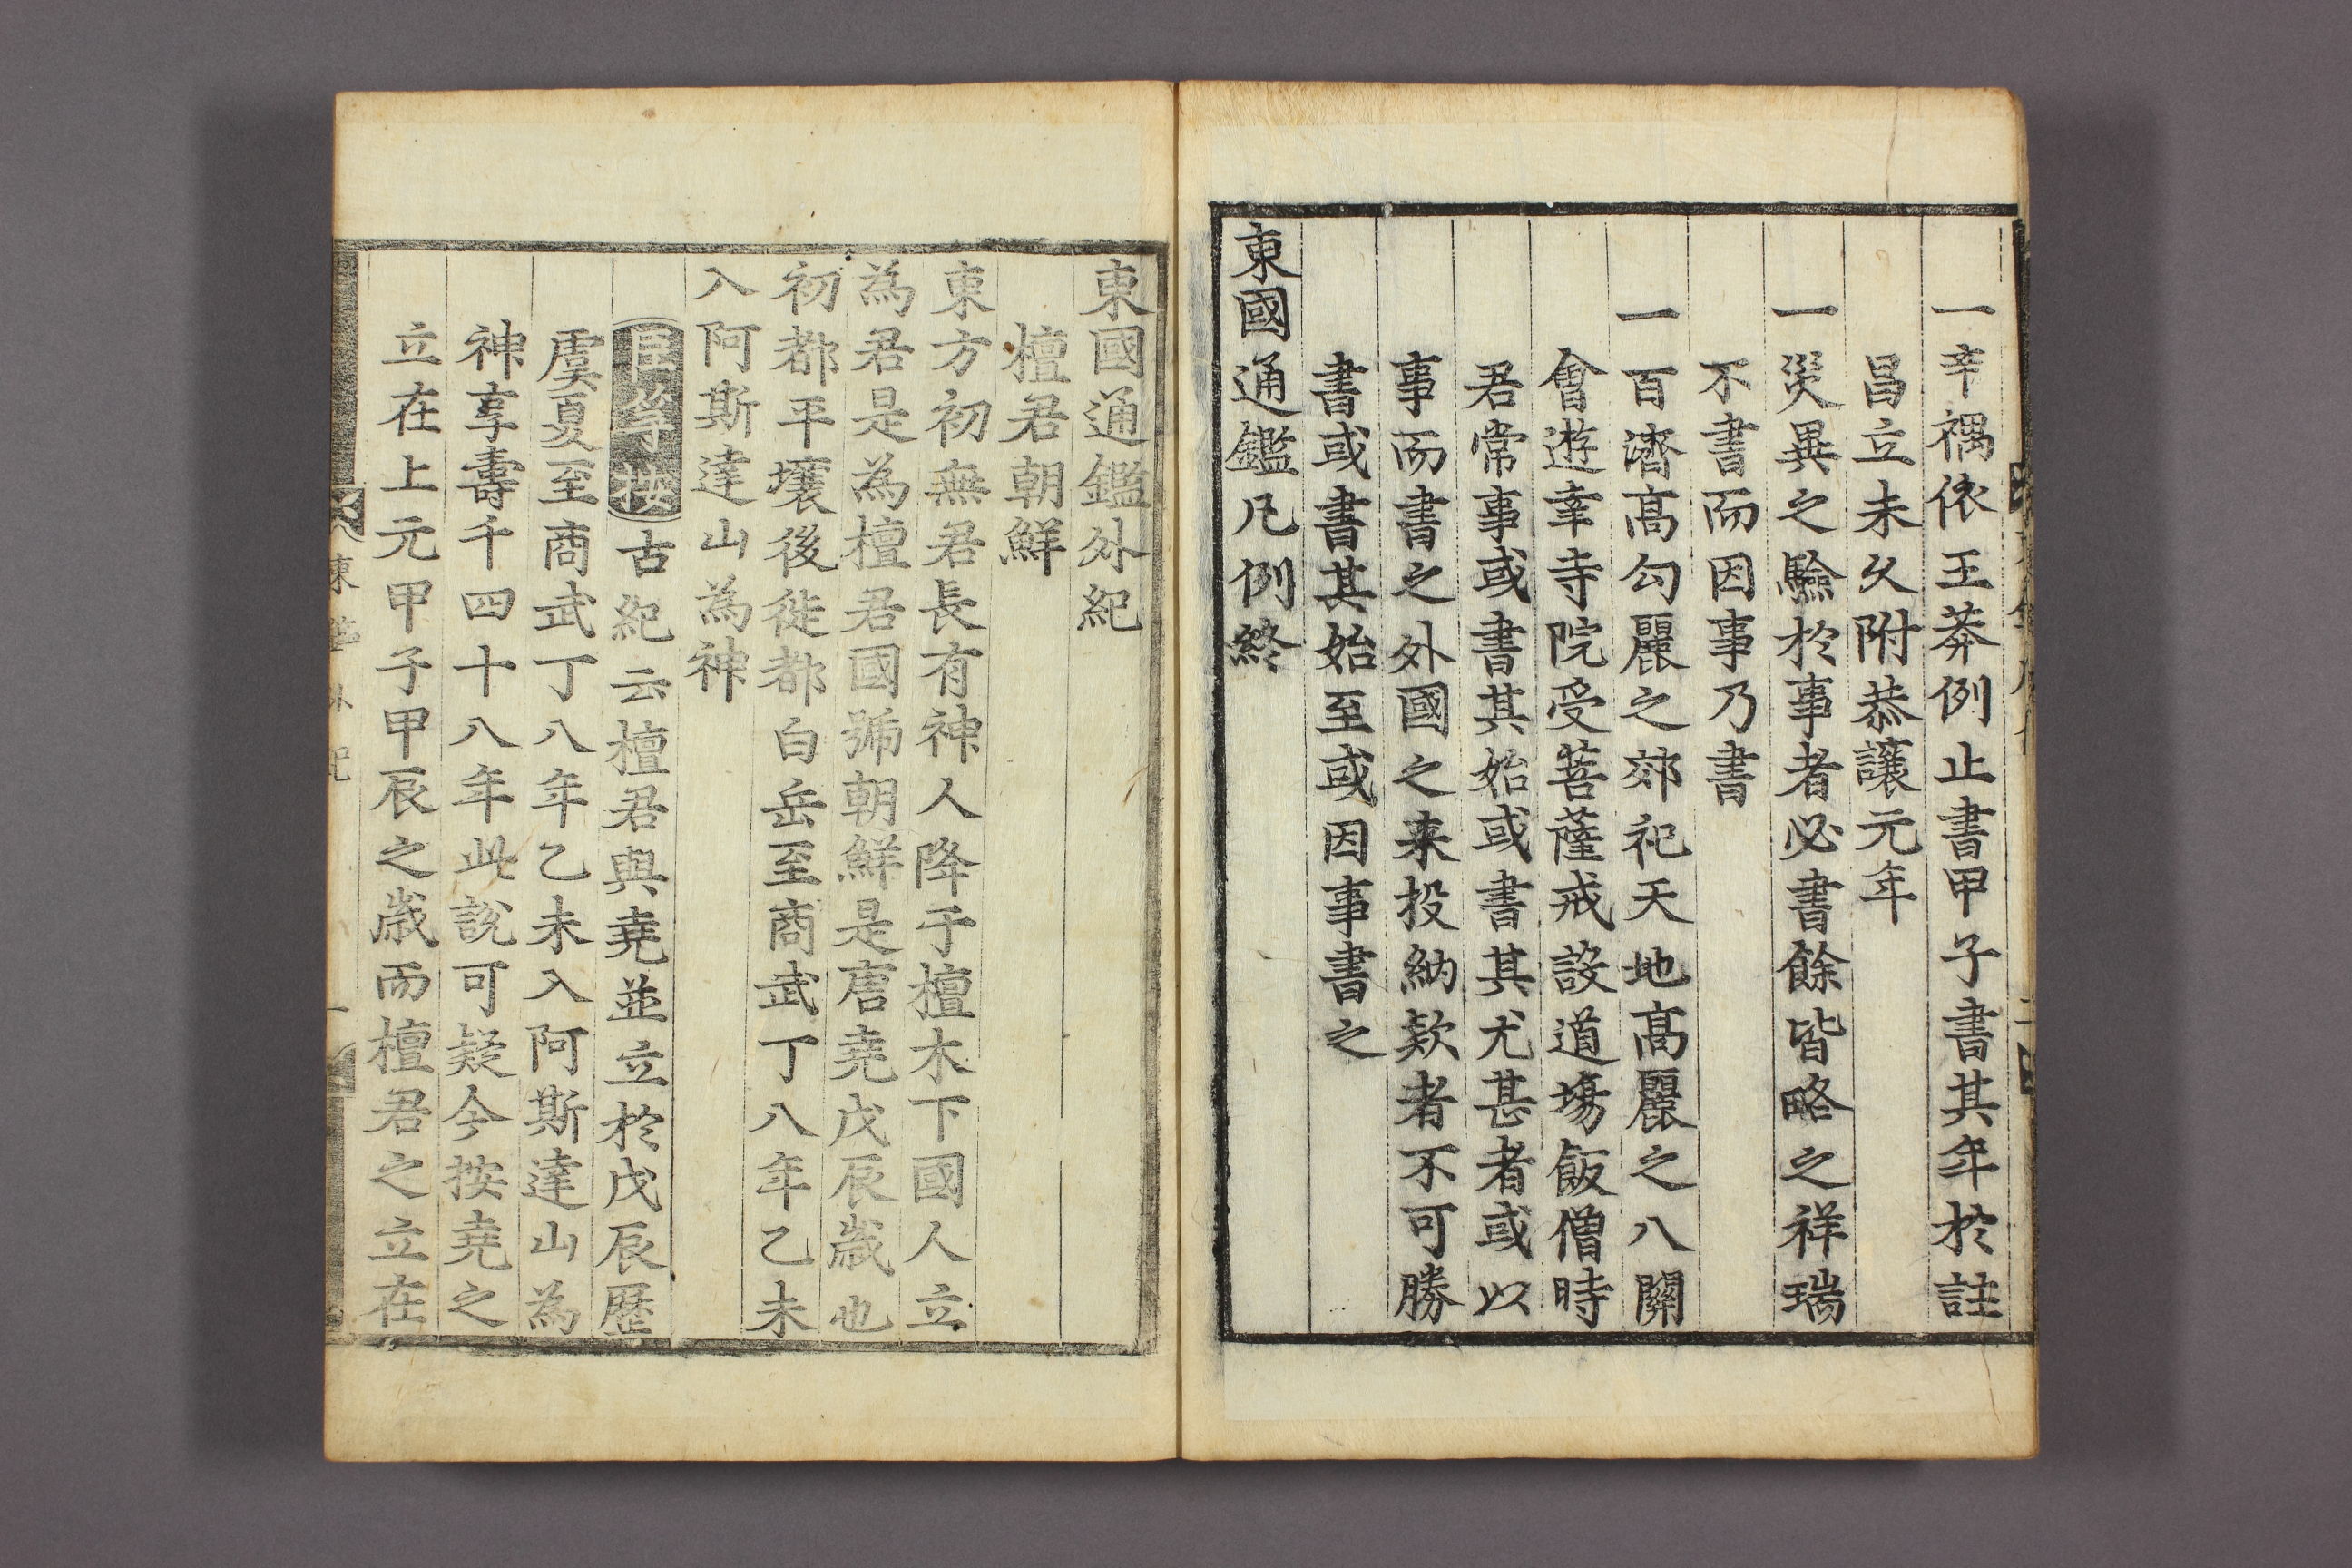 一辛禑依王莽例止書甲子書其年於註
昌立未久附恭讓元年
一災異之驗於事者必書餘皆略之祥瑞
不書而因事乃書
一百濟高勾麗之郊祀天地高麗之八關
會遊幸寺院受菩薩戒設道場飯僧時
君常事或書其始或書其尤甚者或以
事而書之外國之来投納欵者不可勝
書或書其始至或因事書之
東國通鑑凡例終
東國通鑑外紀
檀君朝鮮
東方初無君長有神人降于檀木下國人立
為君是為檀君國號朝鮮是唐堯戊辰歲也
初都平壤後徙都白岳至商武丁八年乙未
入阿斯達山為神
臣等按古紀云檀君與堯並立於戊辰歷
虞夏至商武丁八年乙未入阿斯達山為
神享壽千四十八年此說可疑今按堯之
立在上元甲子甲辰之歲而檀君之立在